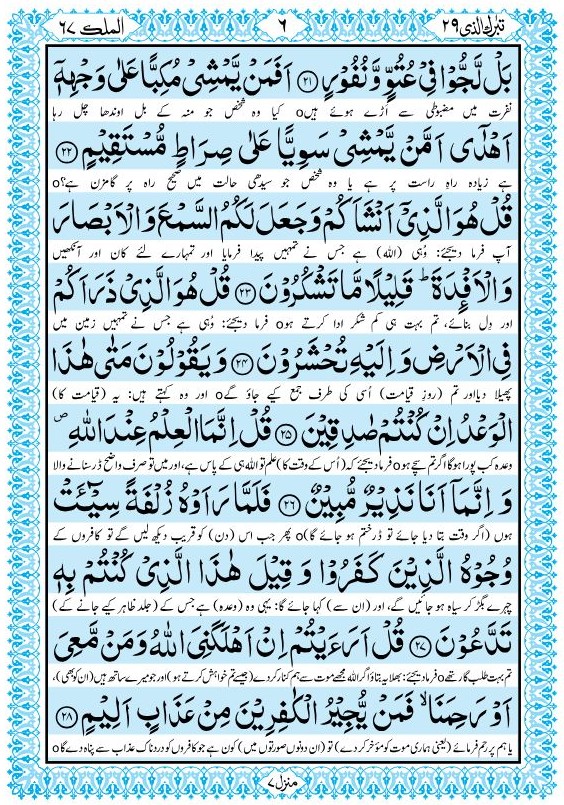 تبٰرك الذی ٢٩ ٦ الملك ٦٧
بَلْ لَّجُّوْا فِیْ عُتُوٍّ وَّ نُفُوْرٍ ﴿٢١﴾ اَفَمَنْ یَّمْشِیْ مُكِبًّا عَلٰی وَجْهِهٖۤ
نفرت میں مضبوطی سے اڑے ہوئے ہیںo کیا وہ شخص جو منہ کے بل اوندھا چل رہا
اَهْدٰۤی اَمَّنْ یَّمْشِیْ سَوِیًّا عَلٰی صِرَاطٍ مُّسْتَقِیْمٍ ﴿٢٢﴾
ہے زیادہ راہِ راست پر ہے یا وہ شخص جو سیدھی حالت میں صحیح راہ پر گامزن ہے؟o
قُلْ هُوَ الَّذِیْۤ اَنْشَاَكُمْ وَ جَعَلَ لَكُمُ السَّمْعَ وَ الْاَبْصَارَ
آپ فرما دیجئے: وُہی (اللہ) ہے جس نے تمہیں پیدا فرمایا اور تمہارے لئے کان اور آنکھیں
وَ الْاَفْـِٕدَةَ ؕ قَلِیْلًا مَّا تَشْكُرُوْنَ ﴿٢٣﴾ قُلْ هُوَ الَّذِیْ ذَرَاَكُمْ
اور دِل بنائے، تم بہت ہی کم شکر ادا کرتے ہوo فرما دیجئے: وُہی ہے جس نے تمہیں زمین میں
فِی الْاَرْضِ وَ اِلَیْهِ تُحْشَرُوْنَ ﴿٢٤﴾ وَ یَقُوْلُوْنَ مَتٰی هٰذَا
پھیلا دیا اور تم (روزِ قیامت) اُسی کی طرف جمع کیے جاؤ گےo اور وہ کہتے ہیں: یہ (قیامت کا)
الْوَعْدُ اِنْ كُنْتُمْ صٰدِقِیْنَ ﴿٢٥﴾ قُلْ اِنَّمَا الْعِلْمُ عِنْدَ اللّٰهِ ۪
وعدہ کب پورا ہوگا اگر تم سچے ہوo فرما دیجئے کہ (اُس کے وقت کا) علم تو اللہ ہی کے پاس ہے، اور میں تو صرف واضح ڈر سنانے والا
وَ اِنَّمَاۤ اَنَا نَذِیْرٌ مُّبِیْنٌ ﴿٢٦﴾ فَلَمَّا رَاَوْهُ زُلْفَةً سِیْٓـَٔتْ
ہوں (اگر وقت بتا دیا جائے تو ڈر ختم ہو جائے گا)o پھر جب اس (دن) کو قریب دیکھ لیں گے تو کافروں کے
وُجُوْهُ الَّذِیْنَ كَفَرُوْا وَ قِیْلَ هٰذَا الَّذِیْ كُنْتُمْ بِهٖ
چہرے بگڑ کر سیاہ ہو جائیں گے، اور (ان سے) کہا جائے گا: یہی وہ (وعدہ) ہے جس کے (جلد ظاہر کیے جانے کے)
تَدَّعُوْنَ ﴿٢٧﴾ قُلْ اَرَءَیْتُمْ اِنْ اَهْلَكَنِیَ اللّٰهُ وَ مَنْ مَّعِیَ
تم بہت طلب گار تھےo فرما دیجئے: بھلا یہ بتاؤ اگر اللہ مجھے موت سے ہم کنار کر دے (جیسے تم خواہش کرتے ہو) اور جو میرے ساتھ ہیں (ان کو بھی)،
اَوْ رَحِمَنَا ۙ فَمَنْ یُّجِیْرُ الْكٰفِرِیْنَ مِنْ عَذَابٍ اَلِیْمٍ ﴿٢٨﴾
یا ہم پر رحم فرمائے (یعنی ہماری موت کو مؤخر کر دے) تو (ان دونوں صورتوں میں) کون ہے جو کافروں کو دردناک عذاب سے پناہ دے گاo
منزل ٧